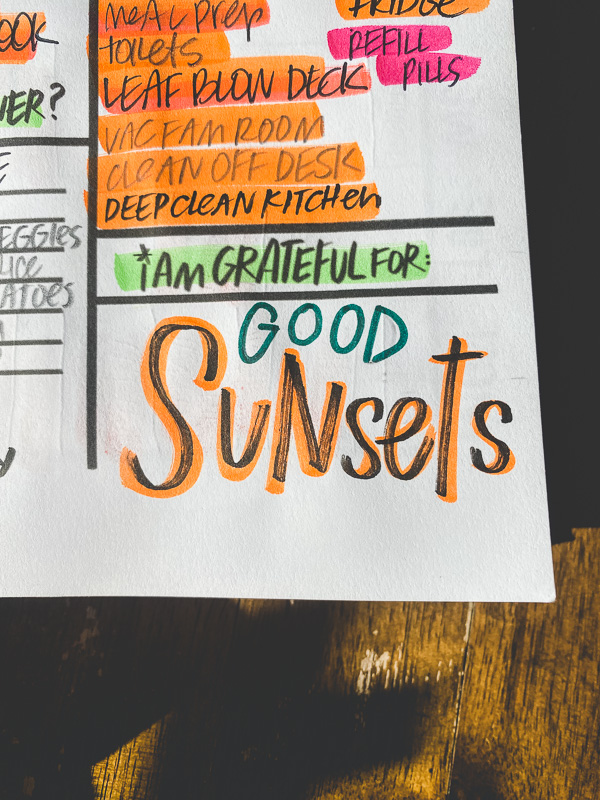 MEAL PREP
TOILETS
LEAF BLOW DECK
VAC FAM ROOM
CLEAN OFF DESK
DEEP CLEAN KITCHEN
FRIDGE
REFILL
PILLS
*I AM GRATEFUL FOR:
GOOD
SUNSETS